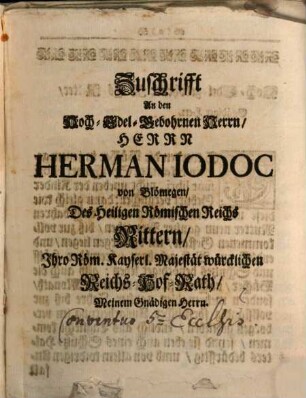 Zuschrifft
An den
Hoch-Edel-Gebohrnen Herrn/
HERRN
HERMAN IODOC
von Blömegen/
Des Heiligen Römischen Reichs
Rittern/
Ihro Röm. Kayserl. Majestät würcklichen
Reichs-Hof-Rath/
Meinem Gnädigen Herrn.
Conventus